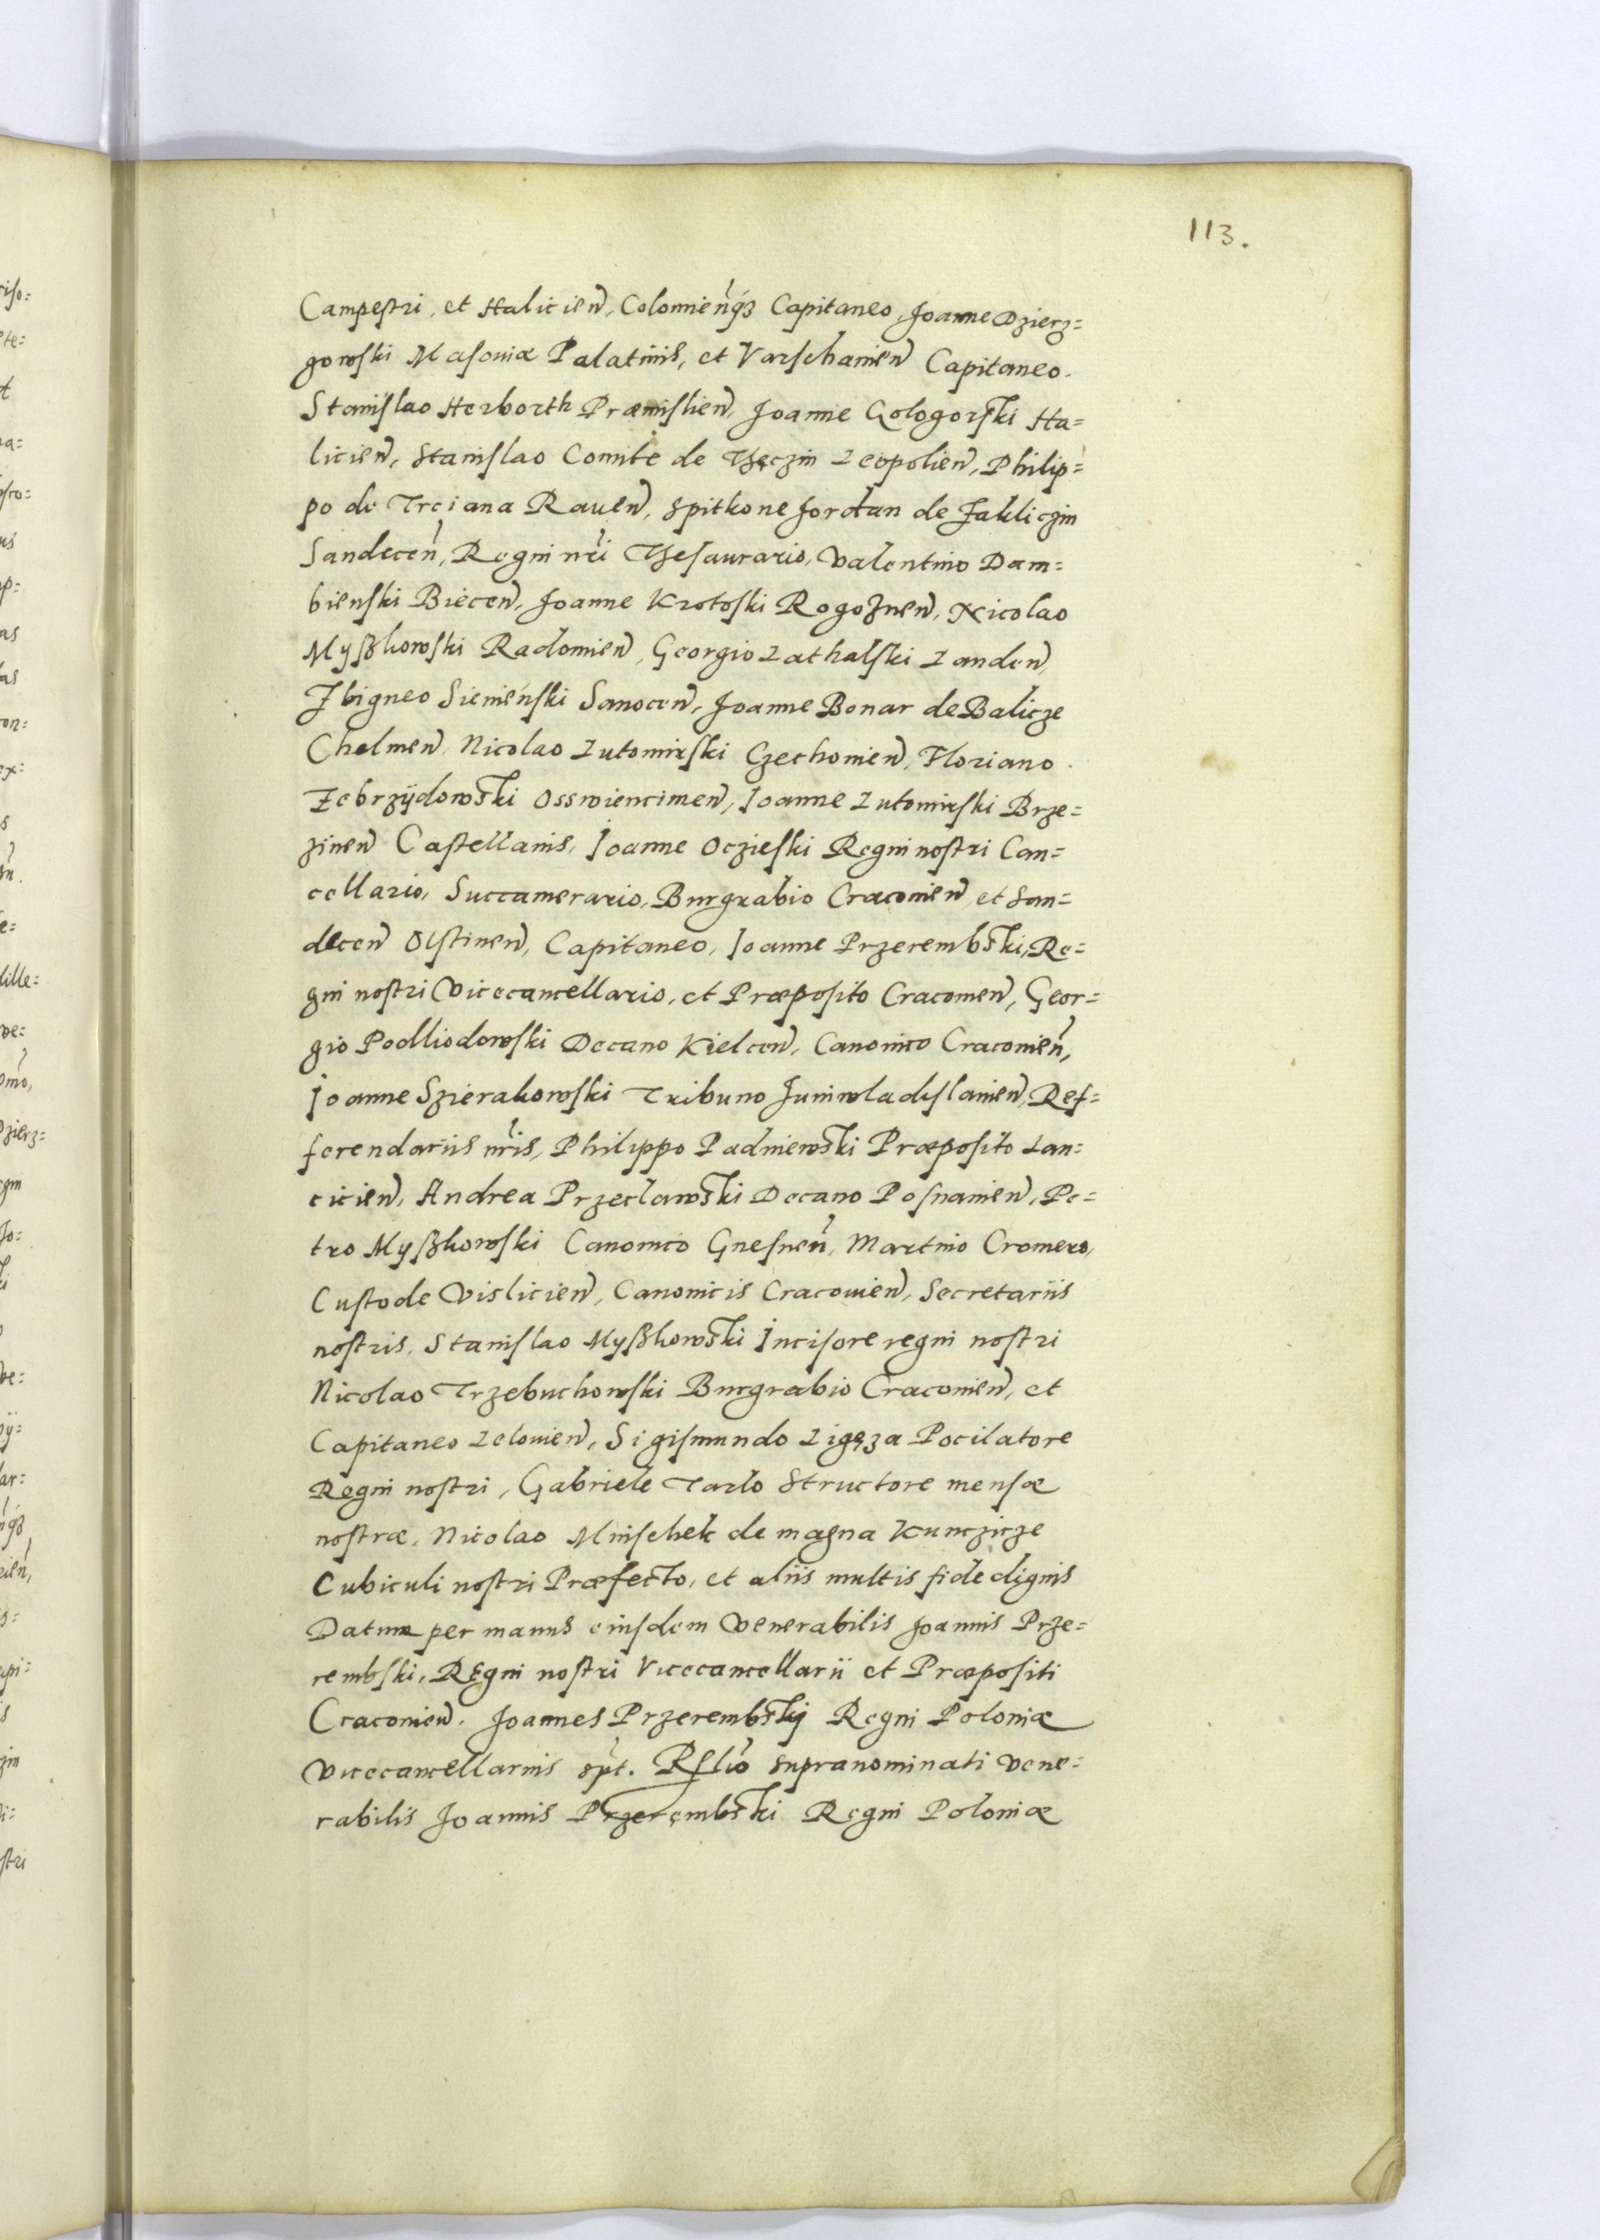 113.
Campestri, et Halicien, Colomienq3 Capitaneo, Joanne Dzierz=
gowski Masoviæ Palatinis, et Varschavien Capitaneo.
Stanislao Herborth Præmislien, Joanne Gologorski Ha=
licien, Stanislao Comite de Theczin Leopolien, Philip=
po de Trciana Raven, Spitkone Jordan de Zakliczin
Sandecen, Regni nri Thesaurario, Valentino Dam=
bienski Biecen, Joanne Krotoski Rogoznen, Nicolao
Myßkowski Radomien, Georgio Lathalski Landen,
Zbigneo Sieniénski Sanocen, Joanne Bonar de Balicze
Chelmen, Nicolao Lutomirski Czechovien, Floriano
Zebrzÿdowski Osswiencimen, Joanne Lutomirski Brze=
zinen Castellanis, Joanne Oczieski Regni nostri Can=
cellario, Succamerario, Burgrabio Cracovien et San=
decen Olstinen, Capitaneo, Joanne Przerembski, Re=
gni nostri Vicecancellario, et Præposito Cracovien, Geor=
gio Podlliodowski Decano Kielcen, Canonico Cracovien,
Joanne Szierakowski Tribuno Juniwladislavien, Ref=
ferendariis nris, Philippo Padniewski Præposito Lan=
cicien, Andrea Przeclawski Decano Posnanien, Pe=
tro Myßkowski Canonico Gnesnen, Martino Cromero,
Custode Vislicien, Canonicis Cracovien, Secretariis
nostris, Stanislao Myßkowski Incisore regni nostri
Nicolao Trzebuchowski Burgrabio Cracovien, et
Capitaneo Lelovien, Sigismundo Ligęza Pocilatore
Regni nostri, Gabriele Tarlo Structore mensæ
nostræ, Nicolao Mnischek de magna Kunczicze
Cubiculi nostri Præfecto, et aliis multis fide dignis
Datum per manus eiusdem Venerabilis Joannis Prze=
rembski, Regni nostri Vicecancellarii et Præpositi
Cracovien. Joannes Przerembskij Regni Poloniæ
Vicecancellarius spt. Relio supranominati vene=
rabilis Joannis Przerembski Regni Poloniæ